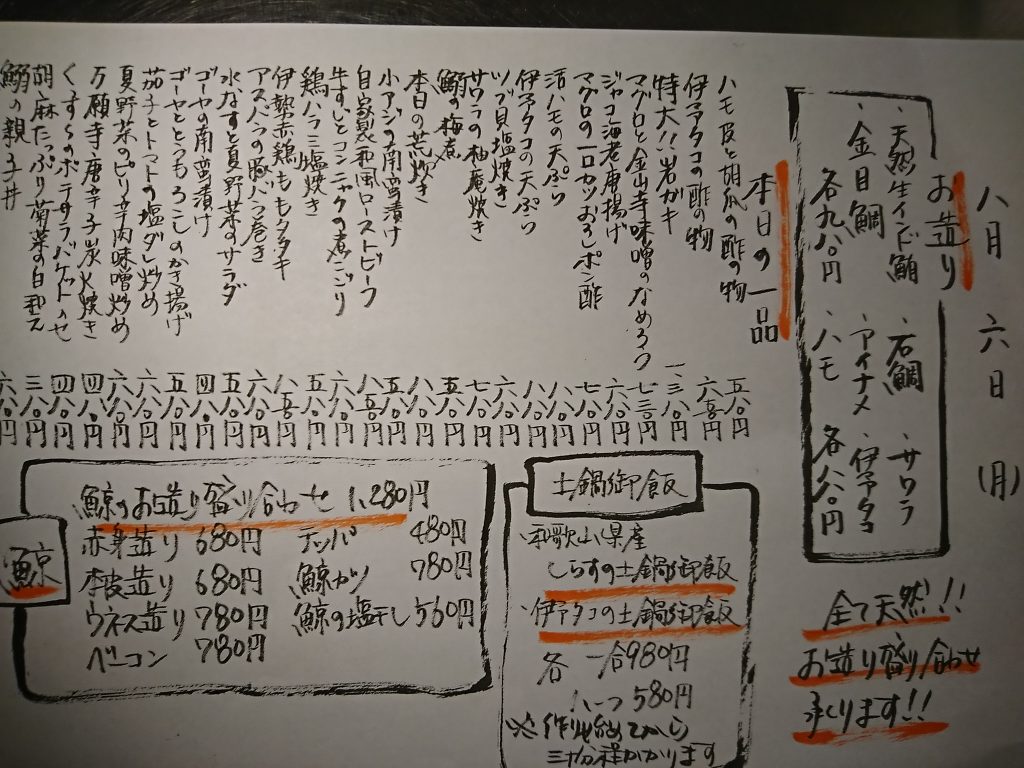 八月 六日 (月)
お造り
・天然生インド鮪 ・石鯛 ・サワラ
・金目鯛 ・アイナメ ・伊予タコ
各九八〇円 ・ハモ 各八八〇円
全て天然!!
お造り盛り合わせ
承ります!!
本日の一品
ハモ皮と胡瓜の酢の物 五八〇円
伊予タコの酢の物 六五〇円
特大!!岩ガキ 一、三八〇円
マグロと金山寺味噌のなめろう 七三〇円
ジャコ海老唐揚げ 六八〇円
マグロの一口カツおろしポン酢 七八〇円
活ハモの天ぷら 八八〇円
伊予タコの天ぷら 八八〇円
ツブ貝塩焼き 六八〇円
サワラの柚庵焼き 七八〇円
鰯の梅煮 五五〇円
本日の荒炊き 八八〇円
小アジの南蛮漬け 五八〇円
自家製和風ローストビーフ 八五〇円
牛すじとコンニャクの煮こごり 五八〇円
鶏ハラミ塩焼き 五八〇円
伊勢赤鶏ももタタキ 八五〇円
アスパラの豚バラ巻き 六八〇円
水なすと夏野菜のサラダ 五八〇円
ゴーヤの南蛮漬け 四八〇円
ゴーヤととうもろこしのかき揚げ 五八〇円
茄子とトマトの塩ダレ炒め 六八〇円
夏野菜のピリ辛肉味噌炒め 六八〇円
万願寺唐辛子炭火焼き 四八〇円
くずらのポテサラバケットのせ 四八〇円
胡麻たっぷり菊菜の白和え 三八〇円
鰯の親子丼 六八〇円
土鍋御飯
・和歌山県産
しらすの土鍋御飯
・伊予タコの土鍋御飯
各 一合980円
ハーフ580円
※作り始めてから
三十分程かかります
鯨
鯨のお造り盛り合わせ 1,280円
赤身造り 680円 テッパ 480円
本皮造り 680円 鯨カツ 780円
ウネス造り 780円 鯨の塩干し 560円
ベーコン 780円